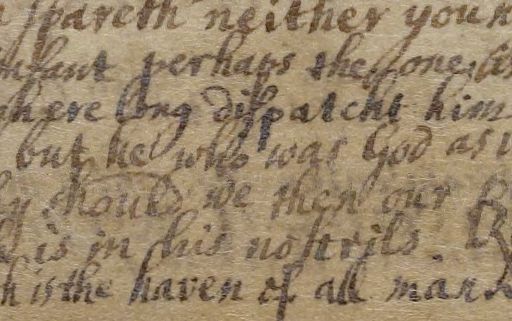 spareth neither your
infant perhaps the one
ere long dispatcht him
but he who was God as
should we then our
is in his nostrils.
h is the haven of all man